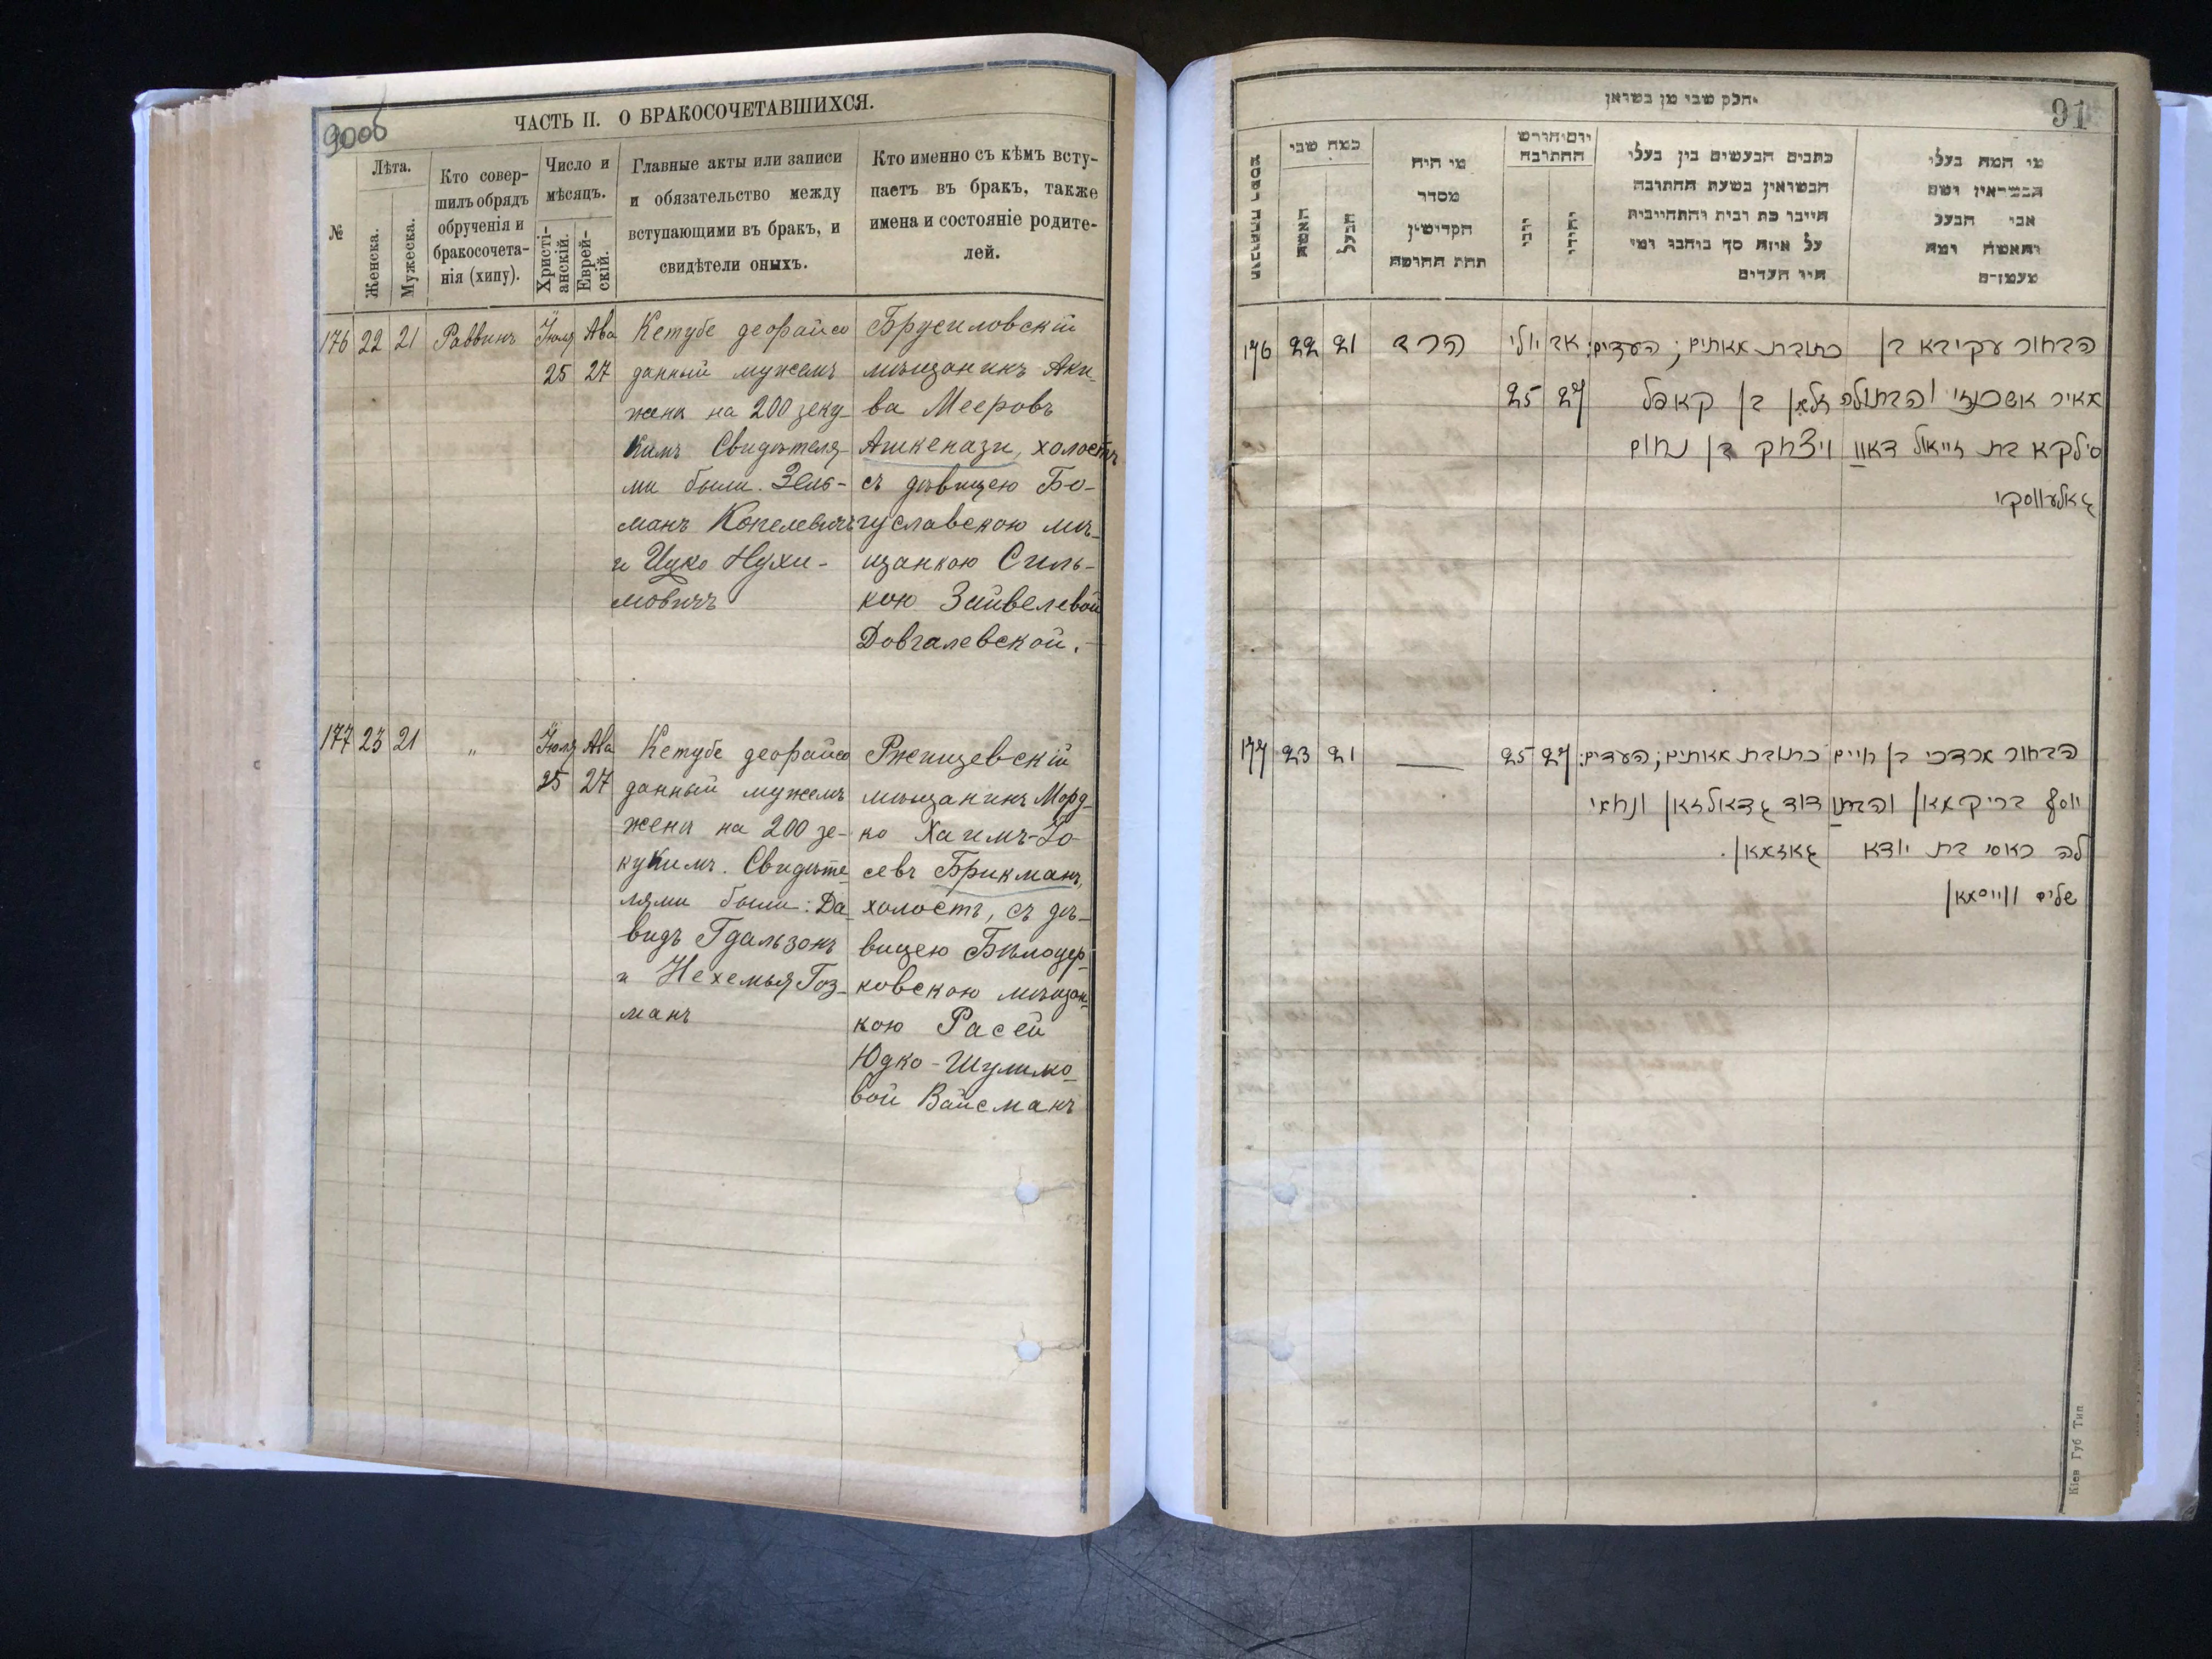 90об
ЧАСТЬ II. О БРАКОСОЧЕТАВШИХСЯ.
№
Лѣта.
Женска.
Мужеска.
Кто совер-
шилъ обрядъ
обрученія и
бракосочета-
нія (хипу).
Число и
мѣсяцъ.
Христі-
анскій.
Еврей-
скій.
Главные акты или записи
и обязательство между
вступающими въ бракъ, и
свидѣтели оныхъ.
Кто именно съ кѣмъ всту-
паетъ въ бракъ, также
имена и состояніе родите-
лей.
176 22 21 Раввинъ
Іюля 25
Ава 27
Кетубе деорайсо
данный мужемъ
жены на 200 зеку-
кимъ Свидѣтеля-
ми были. Зель-
манъ Копелевичъ
и Ицко Нухи-
мовичъ
Брусиловскій
мѣщанинъ Аки-
ва Мееровъ
Ашкенази, холостъ
съ дѣвицею Бо-
гуславскою мѣ-
щанкою Силь-
кою Зайвелевой
Довгалевской.
177 23 21 "
Іюля 25
Ава 27
Кетубе деорайсо
данный мужемъ
жены на 200 зе-
кукимъ. Свидѣте-
лями были: Да-
видъ Гдальзонъ
и Нехемья Гоз-
манъ
Ржищевскій
мѣщанинъ Морд-
ко Хаимъ-Іо-
севъ Брикманъ,
холостъ, съ дѣ-
вицею Бѣлоцер-
ковскою мѣщан-
кою Расей
Юдко-Шулимо-
вой Вайсманъ
91
חלק שני מן נשואן
מי המה בעלי
הנשואין ושם
אבי הבעל
והאשה ומה
מעמדם
כתבים הנעשים בין בעלי
הנשואין בשעת החתונה
היינו כתובות והתחייבות
על איזה סך בוהבו ומי
היו העדים
יום וחודש
החתונה
יהודי
כמה שני
הבעל
האשה
מי היה
מסדר
הקדושין
תחת החופה
176 22 21 הרד
יולי 25
אב 27
כתובת מאתים; העדים:
זלמן בן קאפל
ויצחק בן נחום
הבחור עקיבא בן
מאיר אשכנזי והבתולה
סילקא בת זייוול דאוו
גאלעווסקי
177 23 21
25 27
כתובת מאתים; העדים:
דוד גדאלזאן ונחמי
גאזמאן.
הבחור מרדכי בן חיים
יוסף בריקמאן והבתו
לה ראסי בת יודא
שלום ווייסמאן
Кіев Губ Тип